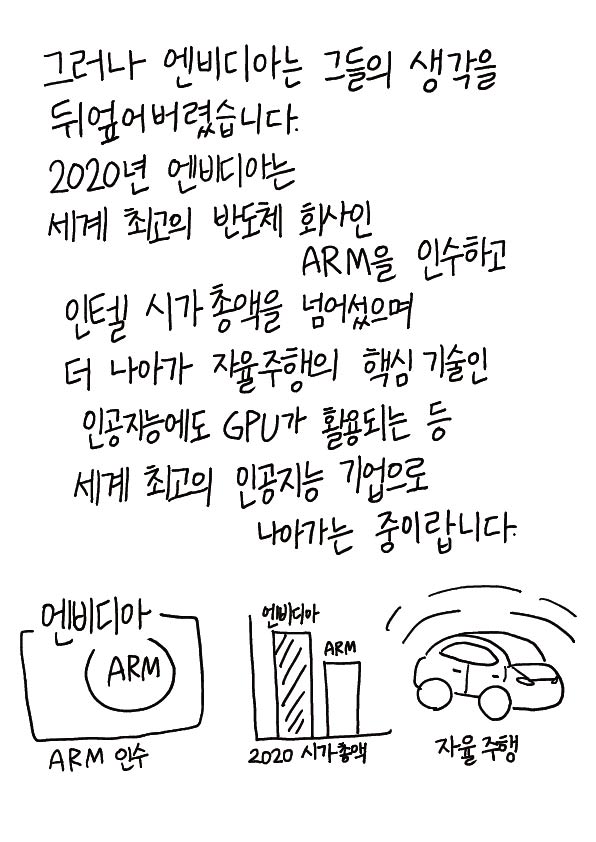 그러나 엔비디아는 그들의 생각을
뒤엎어버렸습니다.
2020년 엔비디아는
세계 최고의 반도체 회사인
ARM을 인수하고
인텔 시가총액을 넘어섰으며
더 나아가 자율주행의 핵심 기술인
인공지능에도 GPU가 활용되는 등
세계 최고의 인공지능 기업으로
나아가는 중이랍니다.
엔비디아
ARM
ARM 인수
엔비디아
ARM
2020 시가총액
자율주행